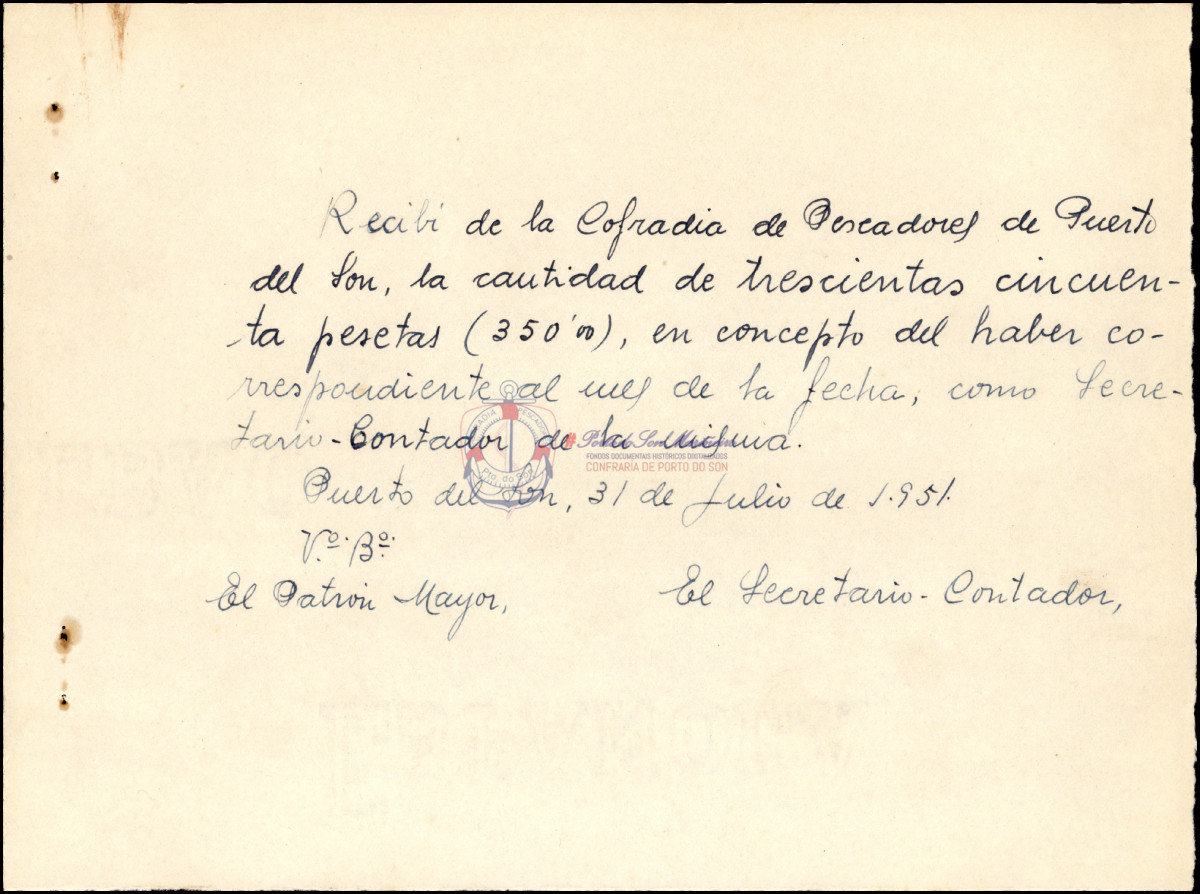 Recibi de la Cofradia de Pescadores de Puerto
del Son, la cantidad de trescientas cincuen-
ta pesetas (350'00), en concepto del haber co-
rrespondiente al mes de la fecha, como Secre-
tario-Contador de la misma.
FONDOS DOCUMENTAIS HISTÓRICOS DIXITALIZADOS
CONFRARÍA DE PORTO DO SON
Pto. do Son
Puerto del Son, 31 de Julio de 1.951.
Vº. Bº.
El Patrón Mayor,
El Secretario-Contador,